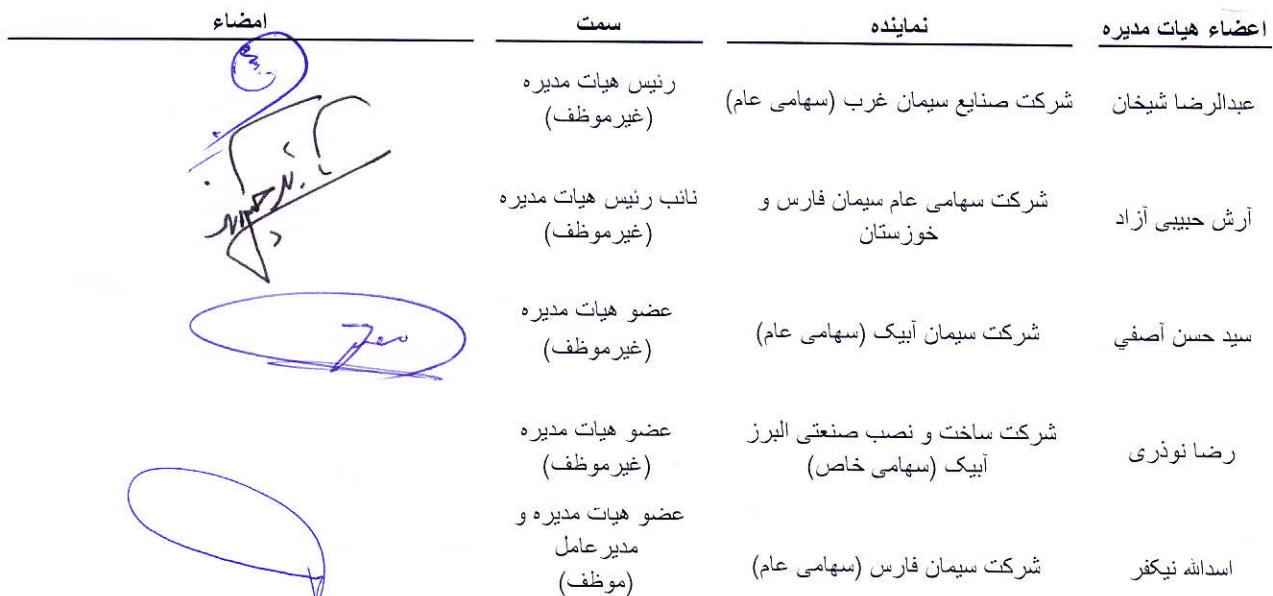 اعضاء هیات مدیره	نماینده	سمت	امضاء
عبدالرضا شیخان	شرکت صنایع سیمان غرب (سهامی عام)	رئیس هیات مدیره
(غیرموظف)
آرش حبیبی آزاد	شرکت سهامی عام سیمان فارس و	نائب رئیس هیات مدیره
خوزستان	(غیرموظف)
سید حسن آصفي	شرکت سیمان آبیک (سهامی عام)	عضو هیات مدیره
(غیرموظف)
رضا نوذری	شرکت ساخت و نصب صنعتی البرز	عضو هیات مدیره
آبیک (سهامی خاص)	(غیرموظف)
عضو هیات مدیره و
مدیرعامل
اسدالله نیکفر	شرکت سیمان فارس (سهامی عام)	(موظف)